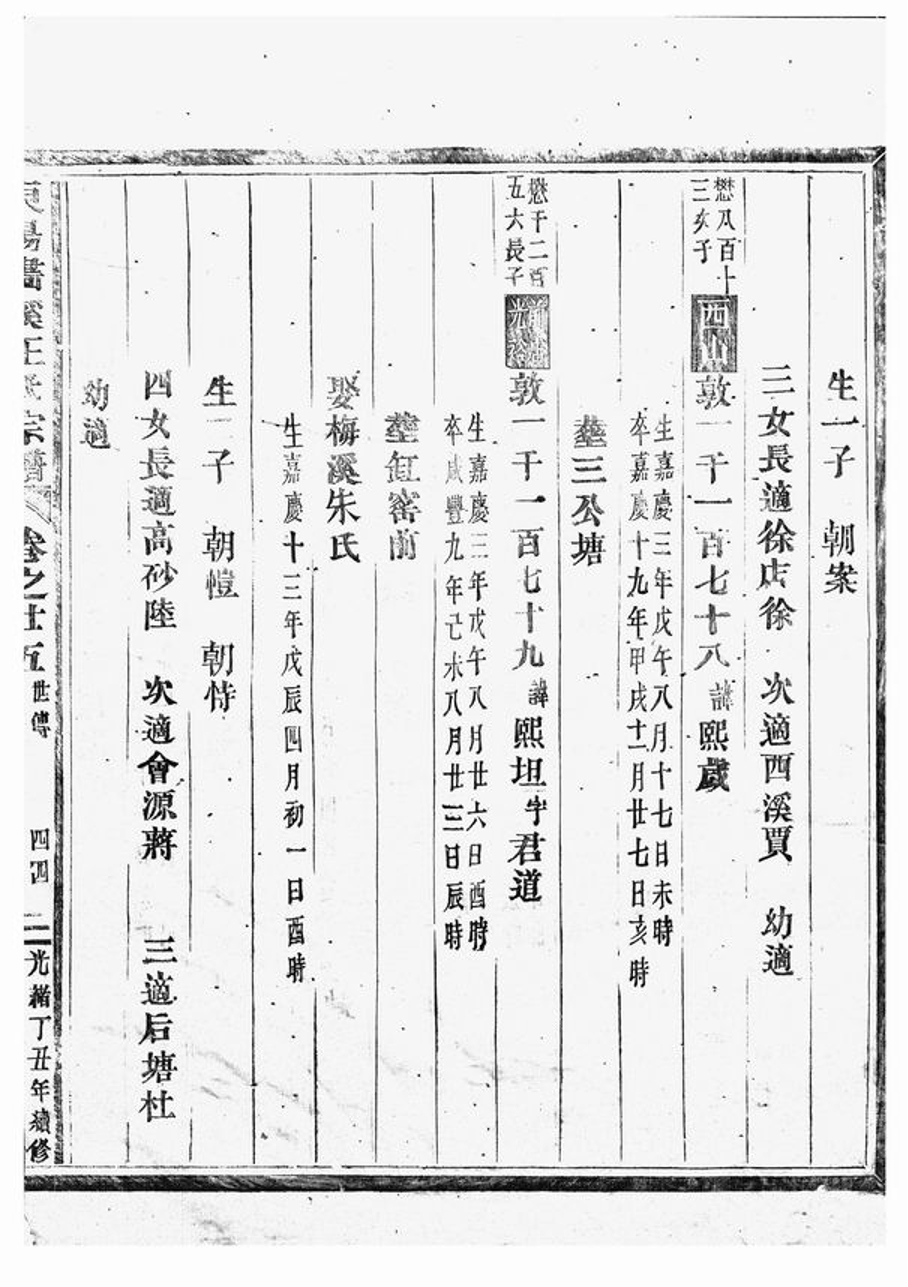 生一子 朝案
三女長適徐店徐 次適西溪賈 幼適
懋八百十
三次子
西山
敦一千一百七十八 諱熙歲
生嘉慶三年戊午八月十七日未時
卒嘉慶十九年甲戌十二月廿七日亥時
塟三公塘
懋千二百
五六長子
敦一千一百七十九 諱熙坦 字君道
生嘉慶三年戊午八月廿六日酉時
卒咸豐九年己未八月廿三日辰時
塟缸窰前
娶梅溪朱氏
生嘉慶十三年戊辰四月初一日酉時
生二子 朝愷 朝恃
四女長適高砂陸 次適會源蔣 三適后塘杜
幼適
溪王氏宗譜 卷之廿五 世傳 四四 光緒丁丑年續修